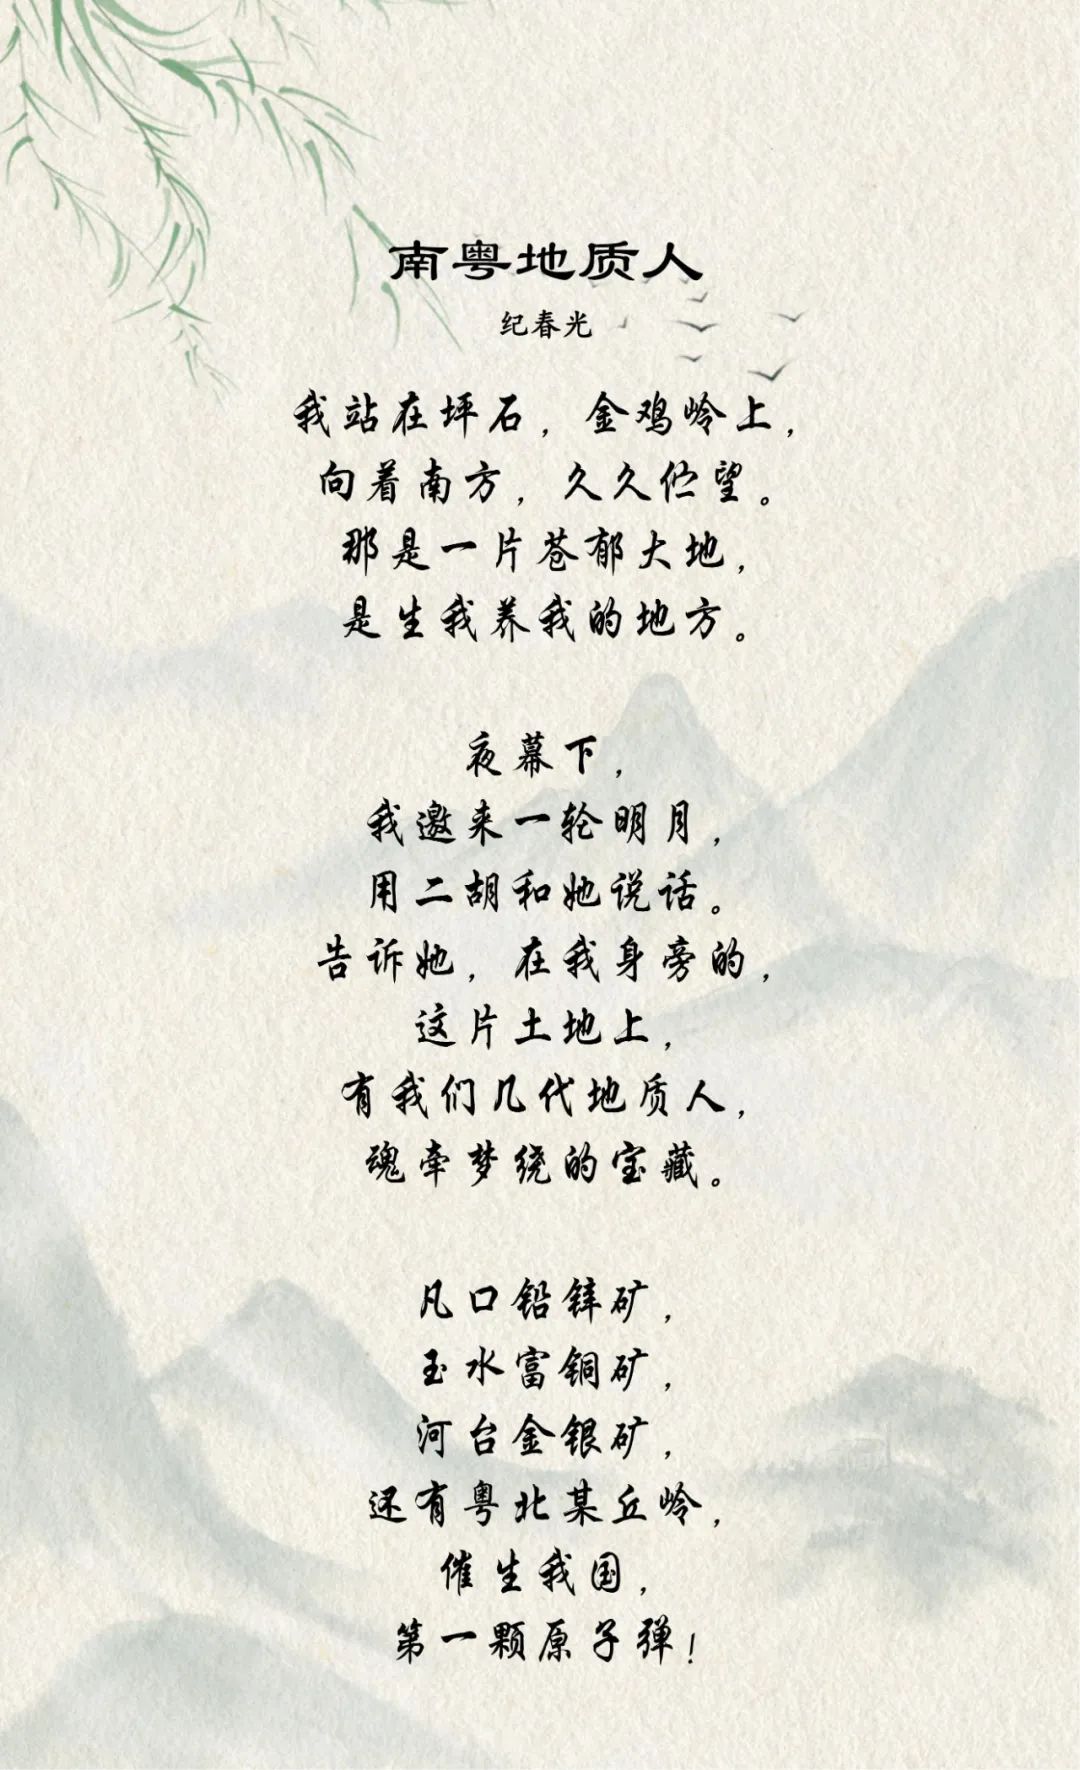 南粤地质人
纪春光
我站在坪石，金鸡岭上，
向着南方，久久伫望。
那是一片苍郁大地，
是生我养我的地方。
夜幕下，
我邀来一轮明月，
用二胡和她说话。
告诉她，在我身旁的，
这片土地上，
有我们几代地质人，
魂牵梦绕的宝藏。
凡口铅锌矿，
玉水富铜矿，
河台金银矿，
还有粤北某丘岭，
催生我国，
第一颗原子弹！